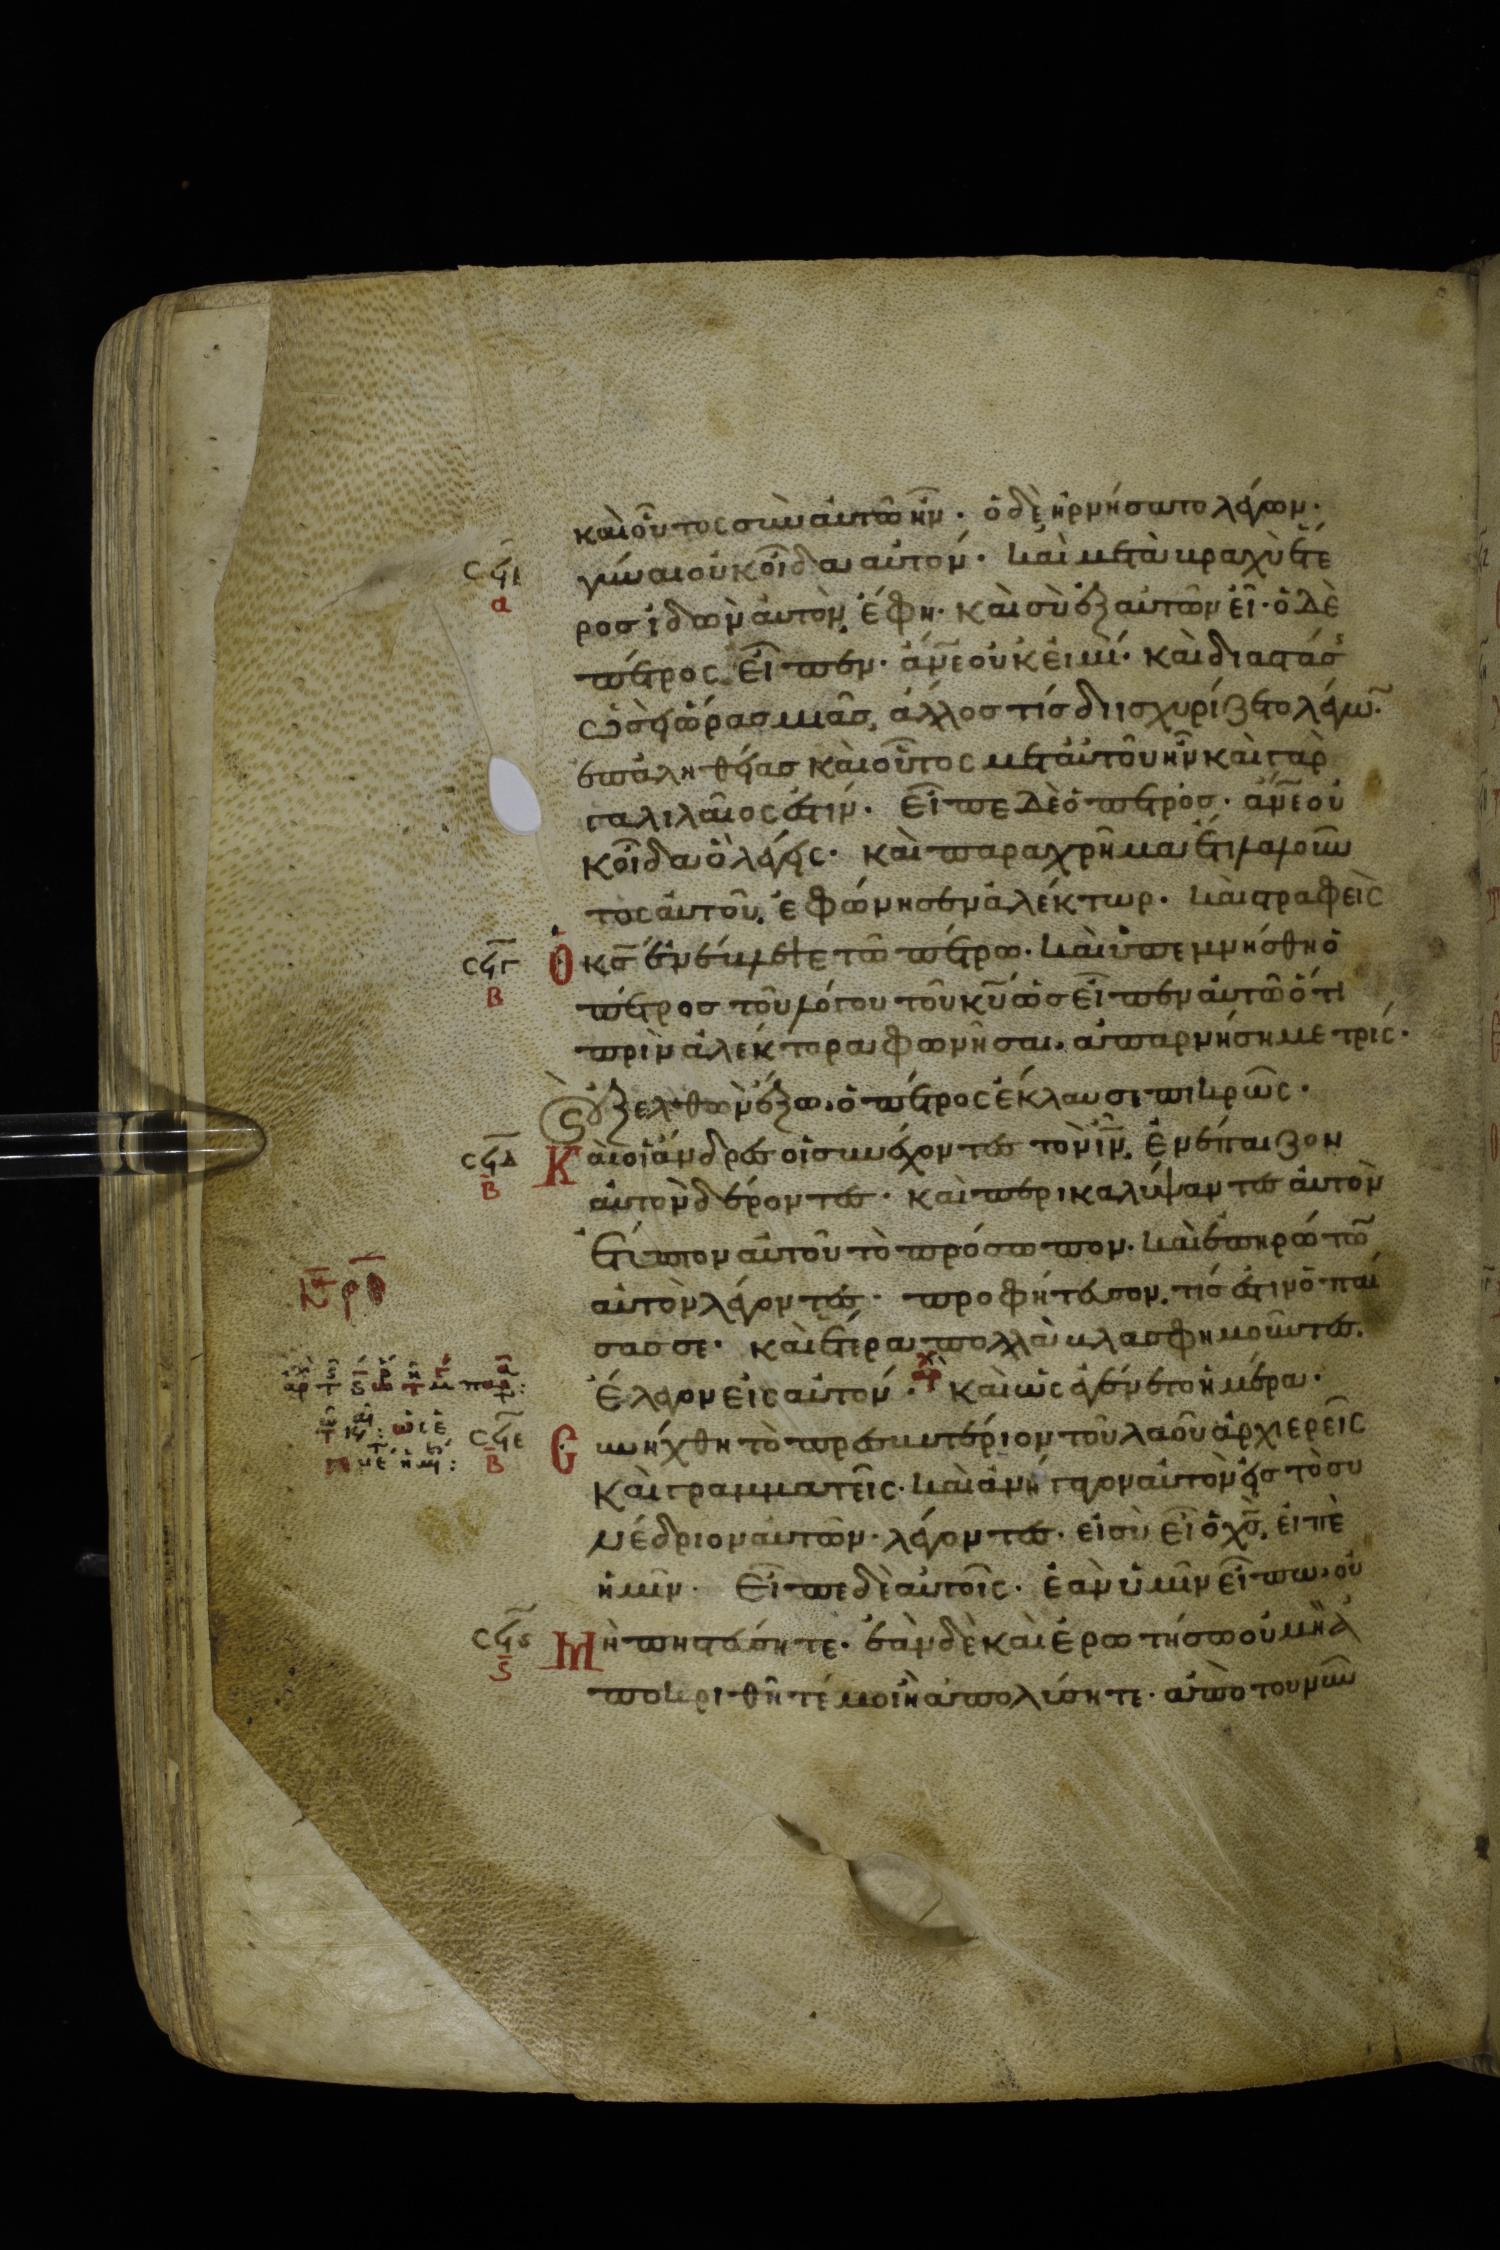 καὶ οὗτος σὺν αὐτῶ ἦν· ὁ δὲ ἠρνήσατο λέγων·
γύναι οὐκ οἶδα αὐτόν· καὶ μετὰ βραχὺ ἕτε
ϲϟι
α
ρος ἰδὼν αὐτὸν, ἔφη· καὶ σὺ ἐξ αὐτῶν εἶ· ὁ δὲ
πέτρος εἶπεν· ἄνε οὐκ εἰμί· καὶ διαστάσ
ὡσεὶ ὥρας μιᾶς, ἄλλος τίς διισχυρίζετο λέγων·
ἐπ' ἀληθείας καὶ οὗτος μετ' αὐτοῦ ἦν καὶ γὰρ
γαλιλαῖος ἐστιν· εἶπε δὲ ὁ πέτρος· ἄνε οὐ
κ οἶδα ὃ λέγεις· καὶ παραχρῆμα ἔτι λαλοῦν
τος αὐτοῦ, ἐφώνησεν ἀλέκτωρ· καὶ στραφεὶς
ϲϟγ
β
Ὁ κς ἐνέβλεψε τῶ πέτρω· καὶ ὑπεμνήσθη ὁ
πέτρος τοῦ λόγου τοῦ κυ ὡς εἶπεν αὐτῶ ὅτι
πρὶν ἀλέκτορα φωνῆσαι, ἀπαρνήση με τρίς·
ϗ ἐξελθὼν ἔξω, ὁ πέτρος ἔκλαυσε πικρῶς·
ϲϟδ
β
Καὶ οἱ ἄνδρες οἱ συνέχοντες τὸν ιν, ἐνέπαιζον
αὐτὸν δέροντες· καὶ περικαλύψαντες αὐτὸν
ἔτυπτον αὐτοῦ τὸ πρόσωπον· καὶ ἐπηρώτων
αὐτὸν λέγοντες· προφήτευσον, τίς ἐστιν ὁ παί
σας σε· καὶ ἕτερα πολλὰ βλασφημοῦντες,
ἔλεγον εἰς αὐτόν· ἀρχ καὶ ὡς ἐγένετο ἡμέρα·
ϲϟε
β
Συνήχθη τὸ πρεσβυτέριον τοῦ λαοῦ ἀρχιερεῖς
καὶ γραμματεῖς· καὶ ἀνήγαγον αὐτὸν εἰς τὸ συ
νέδριον αὐτῶν· λέγοντες· εἰ σὺ εἶ ὁ χς, εἰπὲ
ἡμῖν· εἶπε δὲ αὐτοῖς· ἐὰν ὑμῖν εἴπω, οὐ
ϲϟϛ
ϛ
Μὴ πιστεύσητε· ἐὰν δὲ καὶ ἐρωτήσω οὐ μὴ ἀ
ποκριθῆτέ μοι ἢ ἀπολύσητε· ἀπὸ τοῦ νῦν